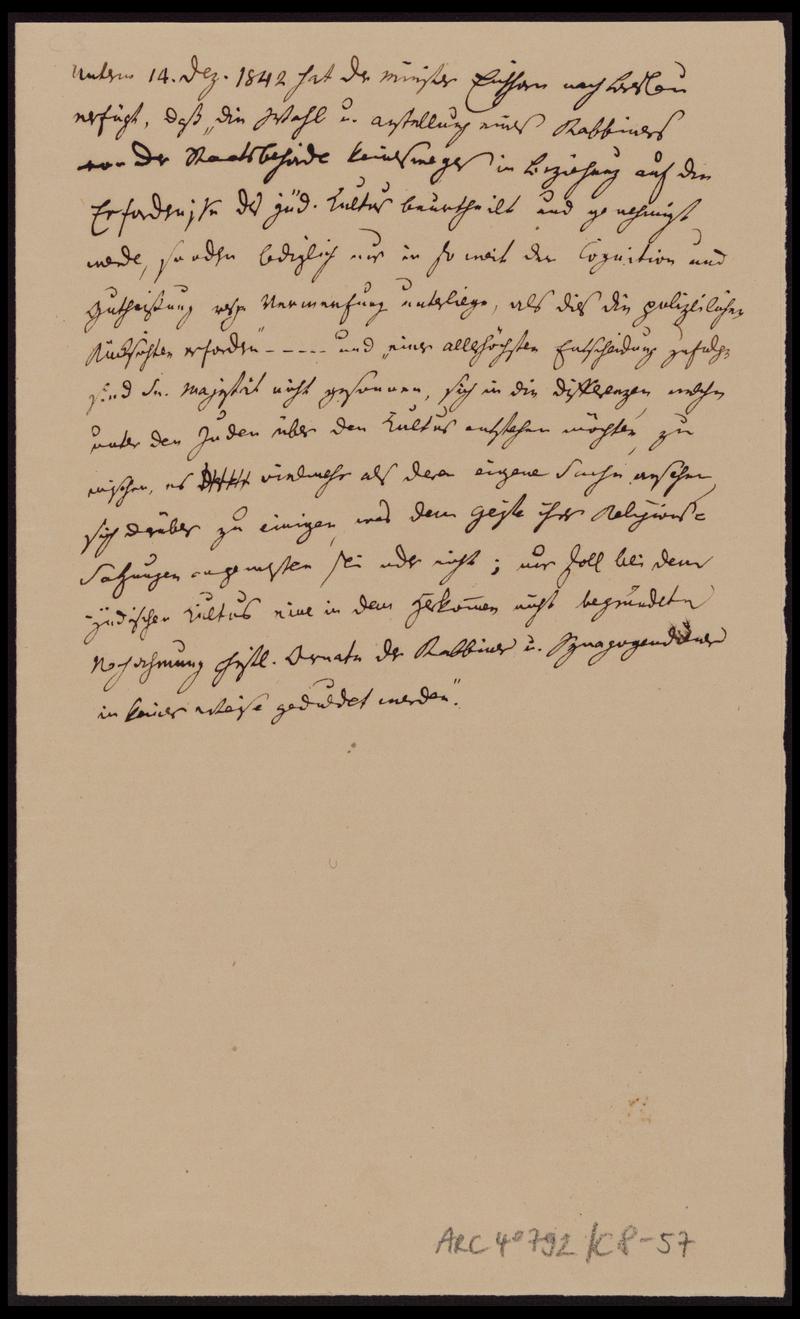 Unterm 14. Dez. 1842 hat der Minister Eichhorn nach Breslau
verfügt, daß „die Wahl u. Anstellung eines Rabbiners
von der Staatsbehörde keinesweges in Beziehung auf die
Erforderniße des jüd. Kultus beurtheilt und genehmigt
werde, sondern lediglich nur in so weit der Cognition und
Gutheißung resp. Verwerfung unterliege, als dies die polizeilichen
Rücksichten erfordern" - - - - und „einer allerhöchsten Entscheidung zufolge
sind Sr. Majestät nicht gesonnen, sich in die Differenzen, welche
unter den Juden über den Kultus entstehen möchten, zu
mischen, es vielmehr als deren eigene Sache ansehen,
sich darüber zu einigen, was dem Geiste ihrer Religions-
Satzungen angemessen sei oder nicht; nur soll bei dem
jüdischen Kultus eine in dem Herkom̅en nicht begründete
Nachahmung christl. Ornate der Rabbiner u. Synagogendiener
in keiner Weise geduldet werden".
ARC 4° 792 / C8-57